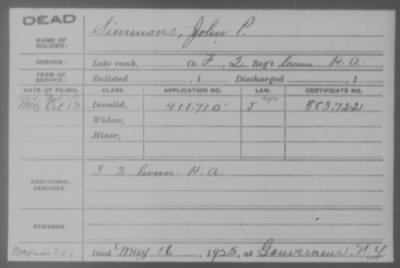 DEAD
NAME OF SOLDIER: Simmons, John P.
SERVICE: Late rank, Co. F, 2 Reg't Conn. H.A.
TERM OF SERVICE: Enlisted , 1 Discharged , 1
DATE OF FILING. CLASS. APPLICATION NO. LAW. CERTIFICATE NO.
Oct 13 Invalid, 411.710 J 883.722
Widow,
Minor,
ADDITIONAL SERVICES: I 2 Conn. H.A.
REMARKS:
Died May 16, 1925, at Gouverneur, N.Y.